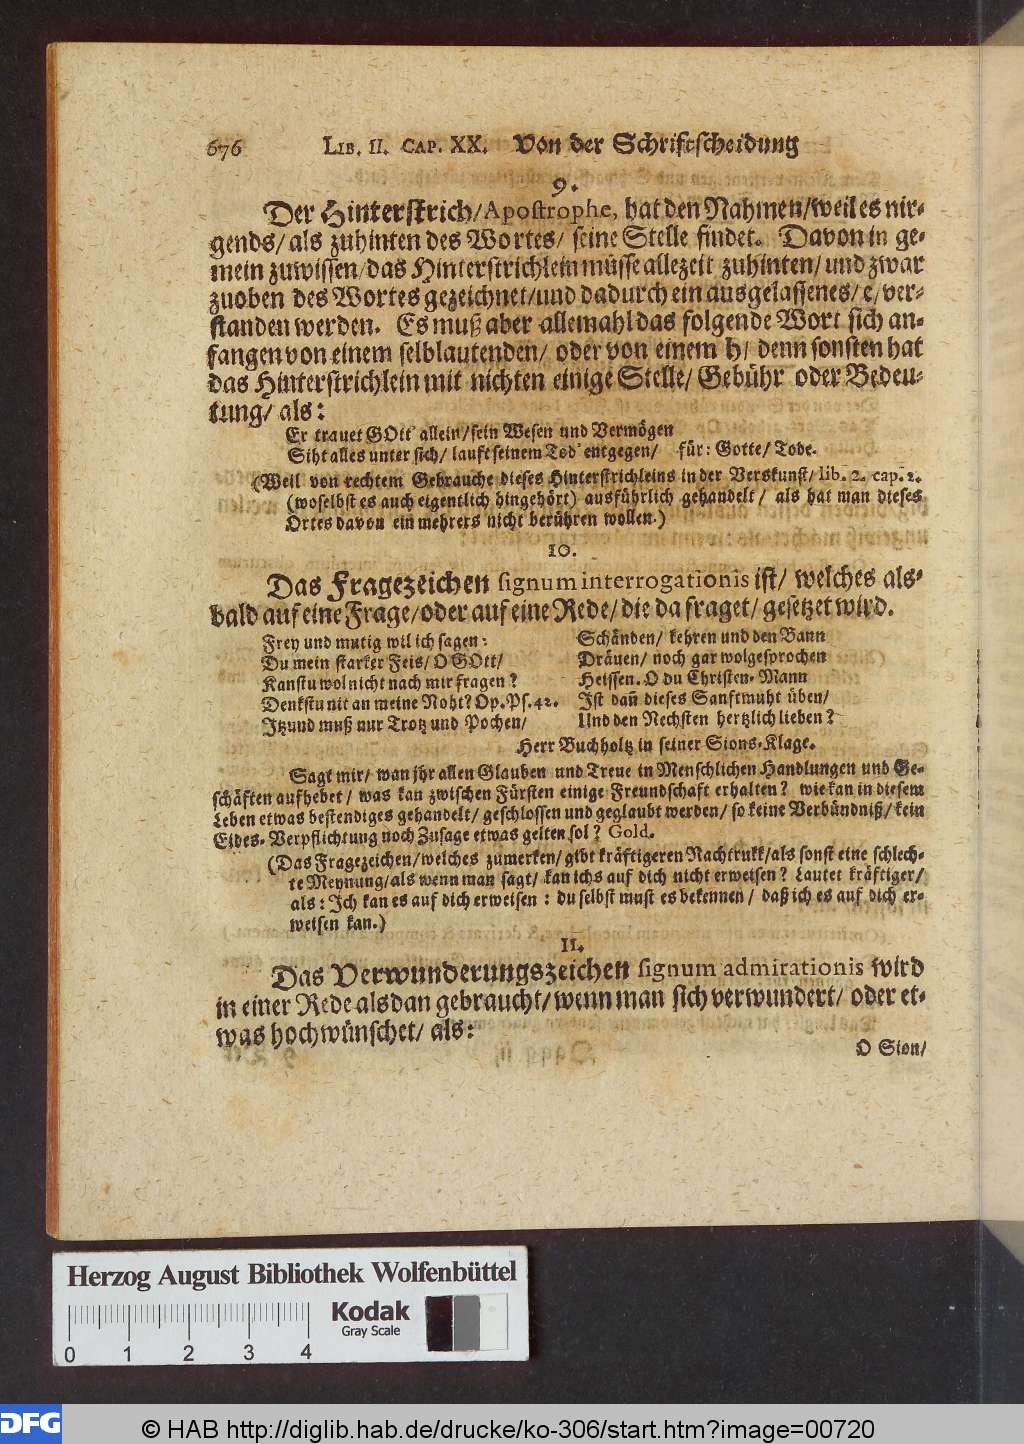 676 LIB. II. CAP. XX. Von der Schriftscheidung
9.
Der Hinterstrich/ Apostrophe, hat den Nahmen/ weil es nir-
gends/ als zuhinten des Wortes/ seine Stelle findet. Davon in ge-
mein zuwissen/ das Hinterstrichlein müsse allezeit zuhinten/ und zwar
zuoben des Wortes gezeichnet/ und dadurch ein ausgelassenes/ e/ ver-
standen werden. Es muß aber allemahl das folgende Wort sich an-
fangen von einem selblautenden/ oder von einem h/ denn sonsten hat
das Hinterstrichlein mit nichten einige Stelle/ Gebühr oder Bedeu-
tung/ als:
Er trauet GOtt' allein/ sein Wesen und Vermögen
Siht alles unter sich/ lauft seinem Tod' entgegen/ für: Gotte/ Tode.
(Weil von rechtem Gebrauche dieses Hinterstrichleins in der Verskunst/ lib. 2. cap. 2.
(woselbst es auch eigentlich hingehört) ausführlich gehandelt/ als hat man dieses
Ortes davon ein mehrers nicht berühren wollen.)
10.
Das Fragezeichen signum interrogationis ist/ welches als-
bald auf eine Frage/ oder auf eine Rede/ die da fraget/ gesetzet wird.
Frey und mutig wil ich sagen:
Du mein starker Fels/ O GOtt/
Kanstu wol nicht nach mir fragen?
Denkstu nit an meine Noht? Op. Ps. 42.
Itzund muß nur Trotz und Pochen/
Schänden/ kehren und den Bann
Dräuen/ noch gar wolgesprochen
Heissen. O du Christen-Mann
Ist dañ dieses Sanftmuht üben/
Und den Nechsten hertzlich lieben?
Herr Buchholtz in seiner Sions-Klage.
Sagt mir/ wan jhr allen Glauben und Treue in Menschlichen Handlungen und Ge-
schäften aufhebet/ was kan zwischen Fürsten einige Freundschaft erhalten? wie kan in diesem
Leben etwas bestendiges gehandelt/ geschlossen und geglaubt werden/ so keine Verbündniß/ kein
Eides-Verpflichtung noch Zusage etwas gelten sol? Gold.
(Das Fragezeichen/ welches zumerken/ gibt kräftigeren Nachtrukk/ als sonst eine schlech-
te Meynung/ als wenn man sagt/ kan ichs auf dich nicht erweisen? Lautet kräftiger/
als: Ich kan es auf dich erweisen: du selbst must es bekennen/ daß ich es auf dich er-
weisen kan.)
11.
Das Verwunderungszeichen signum admirationis wird
in einer Rede alsdan gebraucht/ wenn man sich verwundert/ oder et-
was hochwünschet/ als:
O Sion/
Herzog August Bibliothek Wolfenbüttel
Kodak
Gray Scale
0 1 2 3 4
DFG © HAB http://diglib.hab.de/drucke/ko-306/start.htm?image=00720